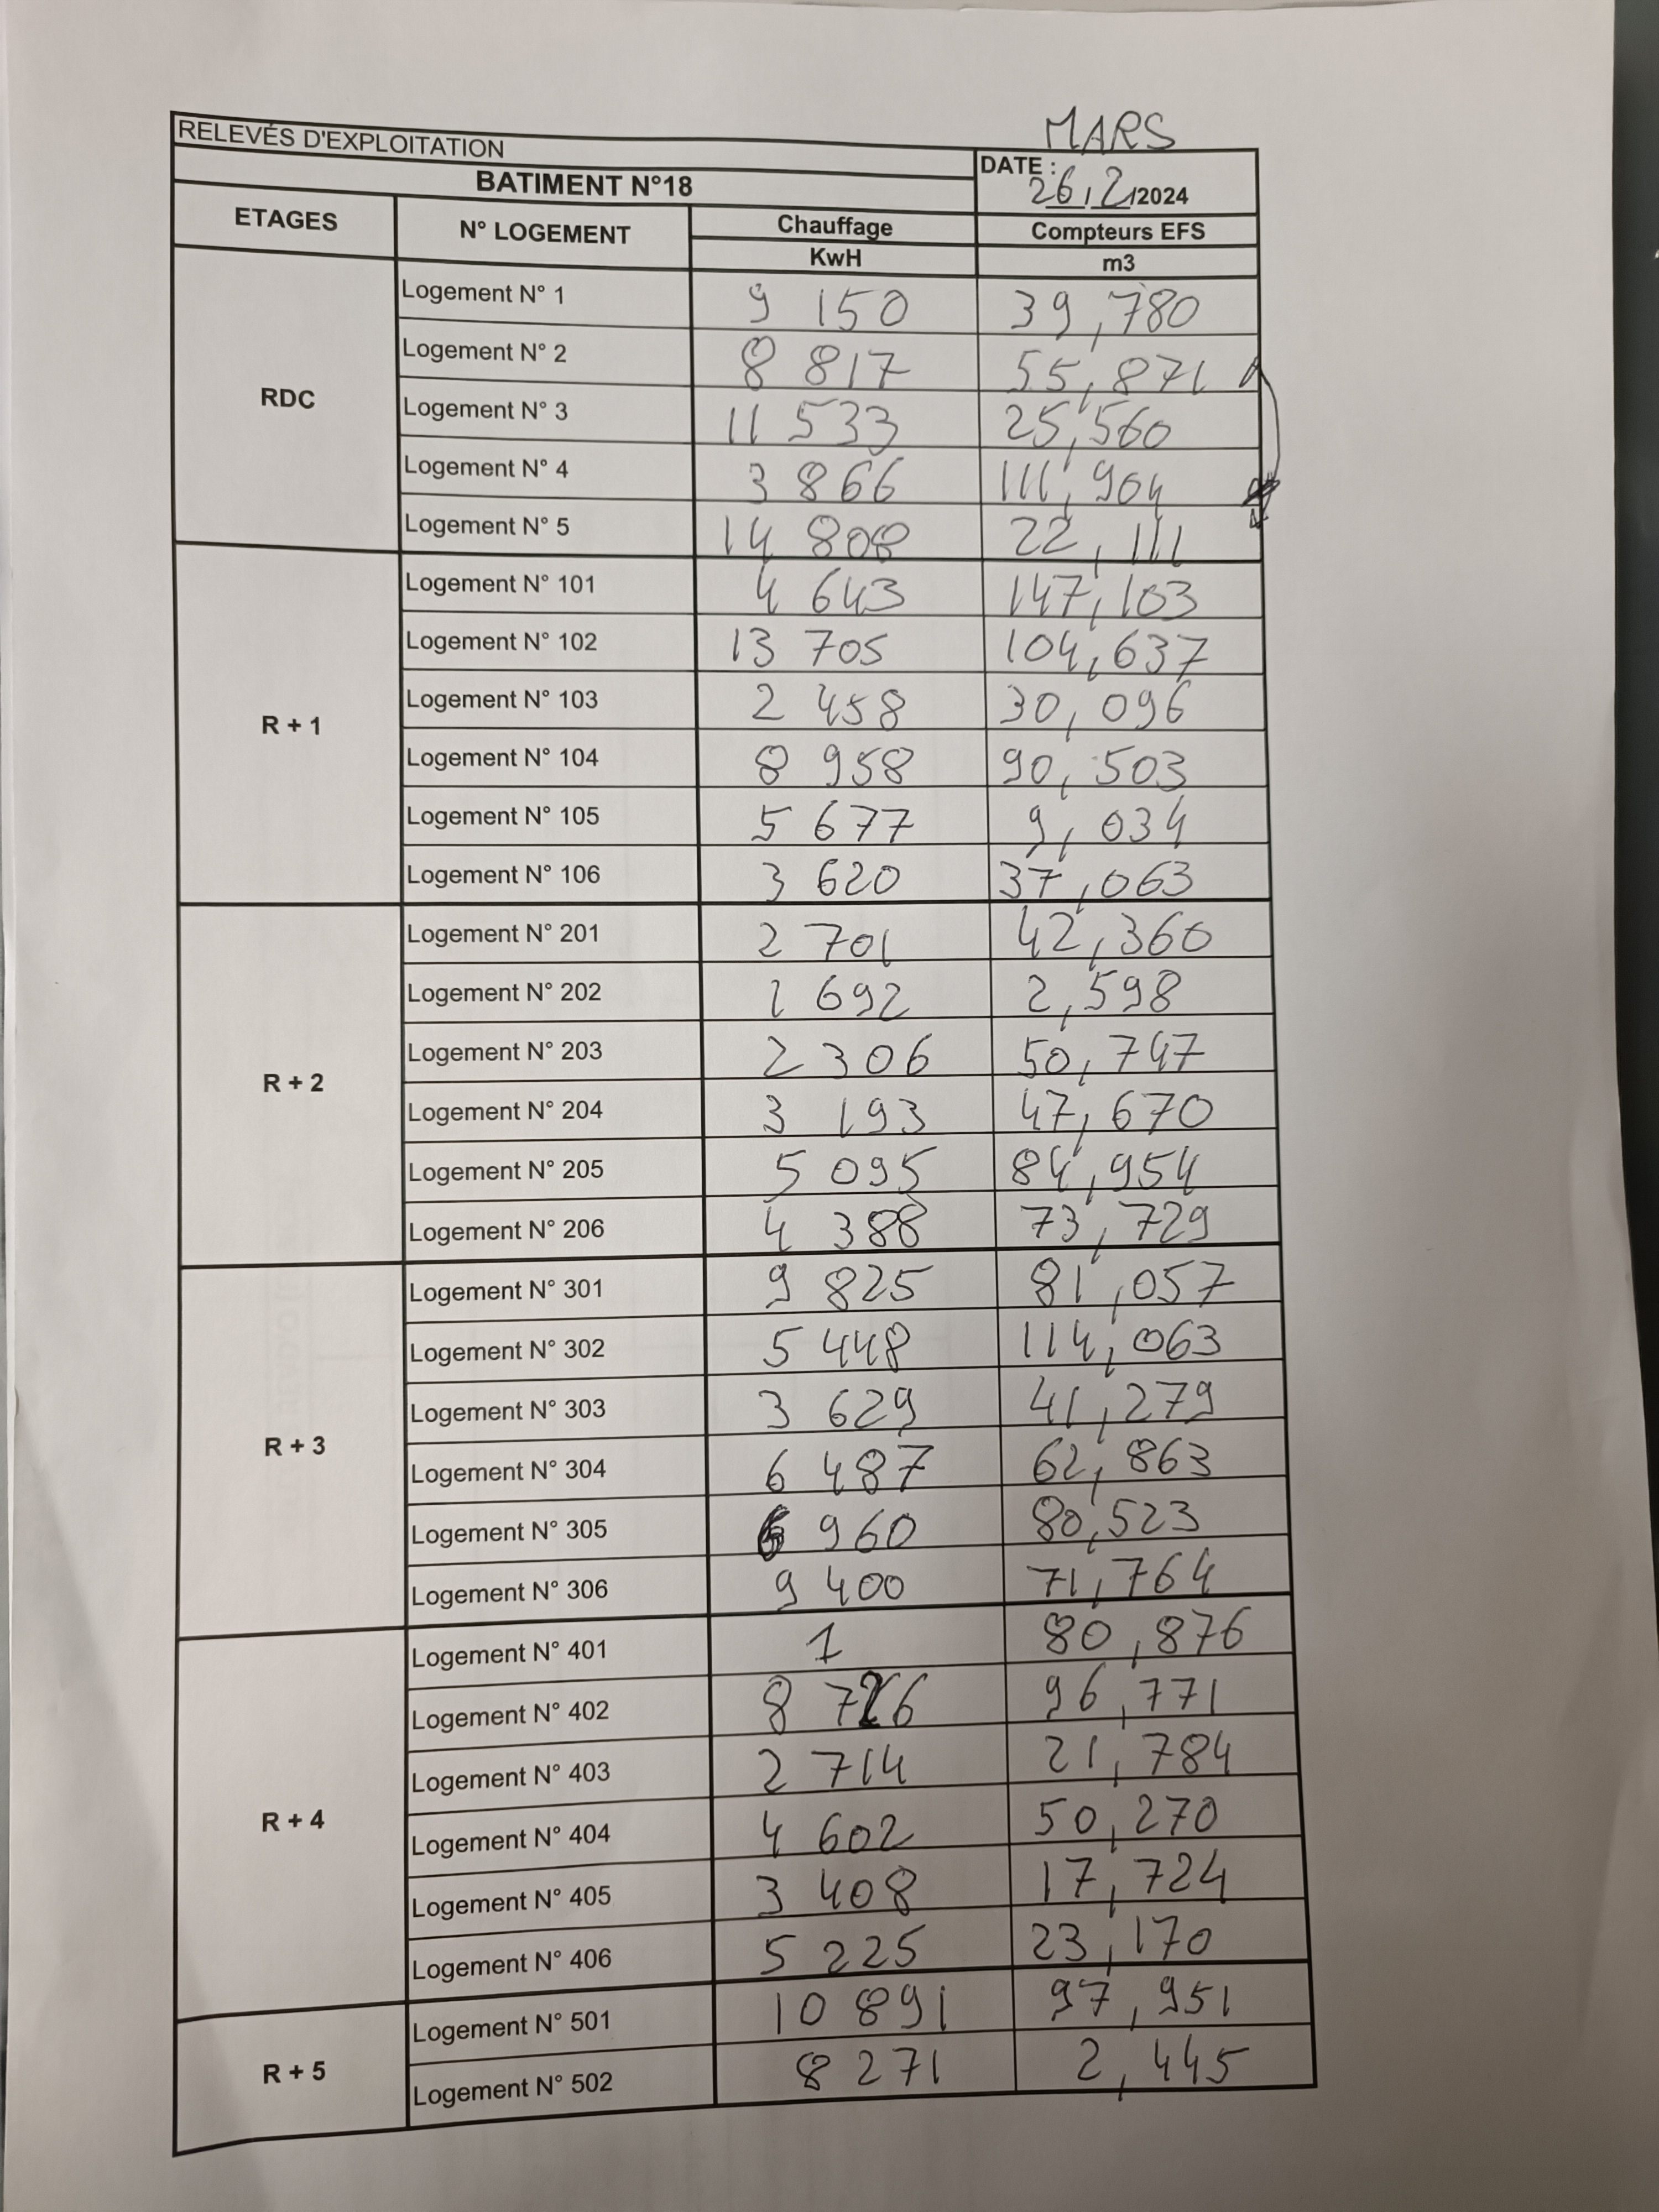 MARS
RELEVÉS D'EXPLOITATION
DATE :
BATIMENT N°18
26/2/2024
ETAGES N° LOGEMENT Chauffage Compteurs EFS
KwH m3
RDC
Logement N° 1 9 150 39,780
Logement N° 2 8 817 55,871
Logement N° 3 11 533 25,560
Logement N° 4 3 866 111,904
Logement N° 5 14 808 22,111
R + 1
Logement N° 101 4 643 147,103
Logement N° 102 13 705 104,637
Logement N° 103 2 458 30,096
Logement N° 104 8 958 90,503
Logement N° 105 5 677 9,034
Logement N° 106 3 620 37,063
R + 2
Logement N° 201 2 701 42,360
Logement N° 202 1 692 2,598
Logement N° 203 2 306 50,747
Logement N° 204 3 193 47,670
Logement N° 205 5 095 84,954
Logement N° 206 4 388 73,729
R + 3
Logement N° 301 9 825 81,057
Logement N° 302 5 448 114,063
Logement N° 303 3 629 41,279
Logement N° 304 6 487 62,863
Logement N° 305 6 960 80,523
Logement N° 306 9 400 71,764
R + 4
Logement N° 401 1 80,876
Logement N° 402 8 726 96,771
Logement N° 403 2 714 21,784
Logement N° 404 4 602 50,270
Logement N° 405 3 408 17,724
Logement N° 406 5 225 23,170
R + 5
Logement N° 501 10 891 97,951
Logement N° 502 8 271 2,445